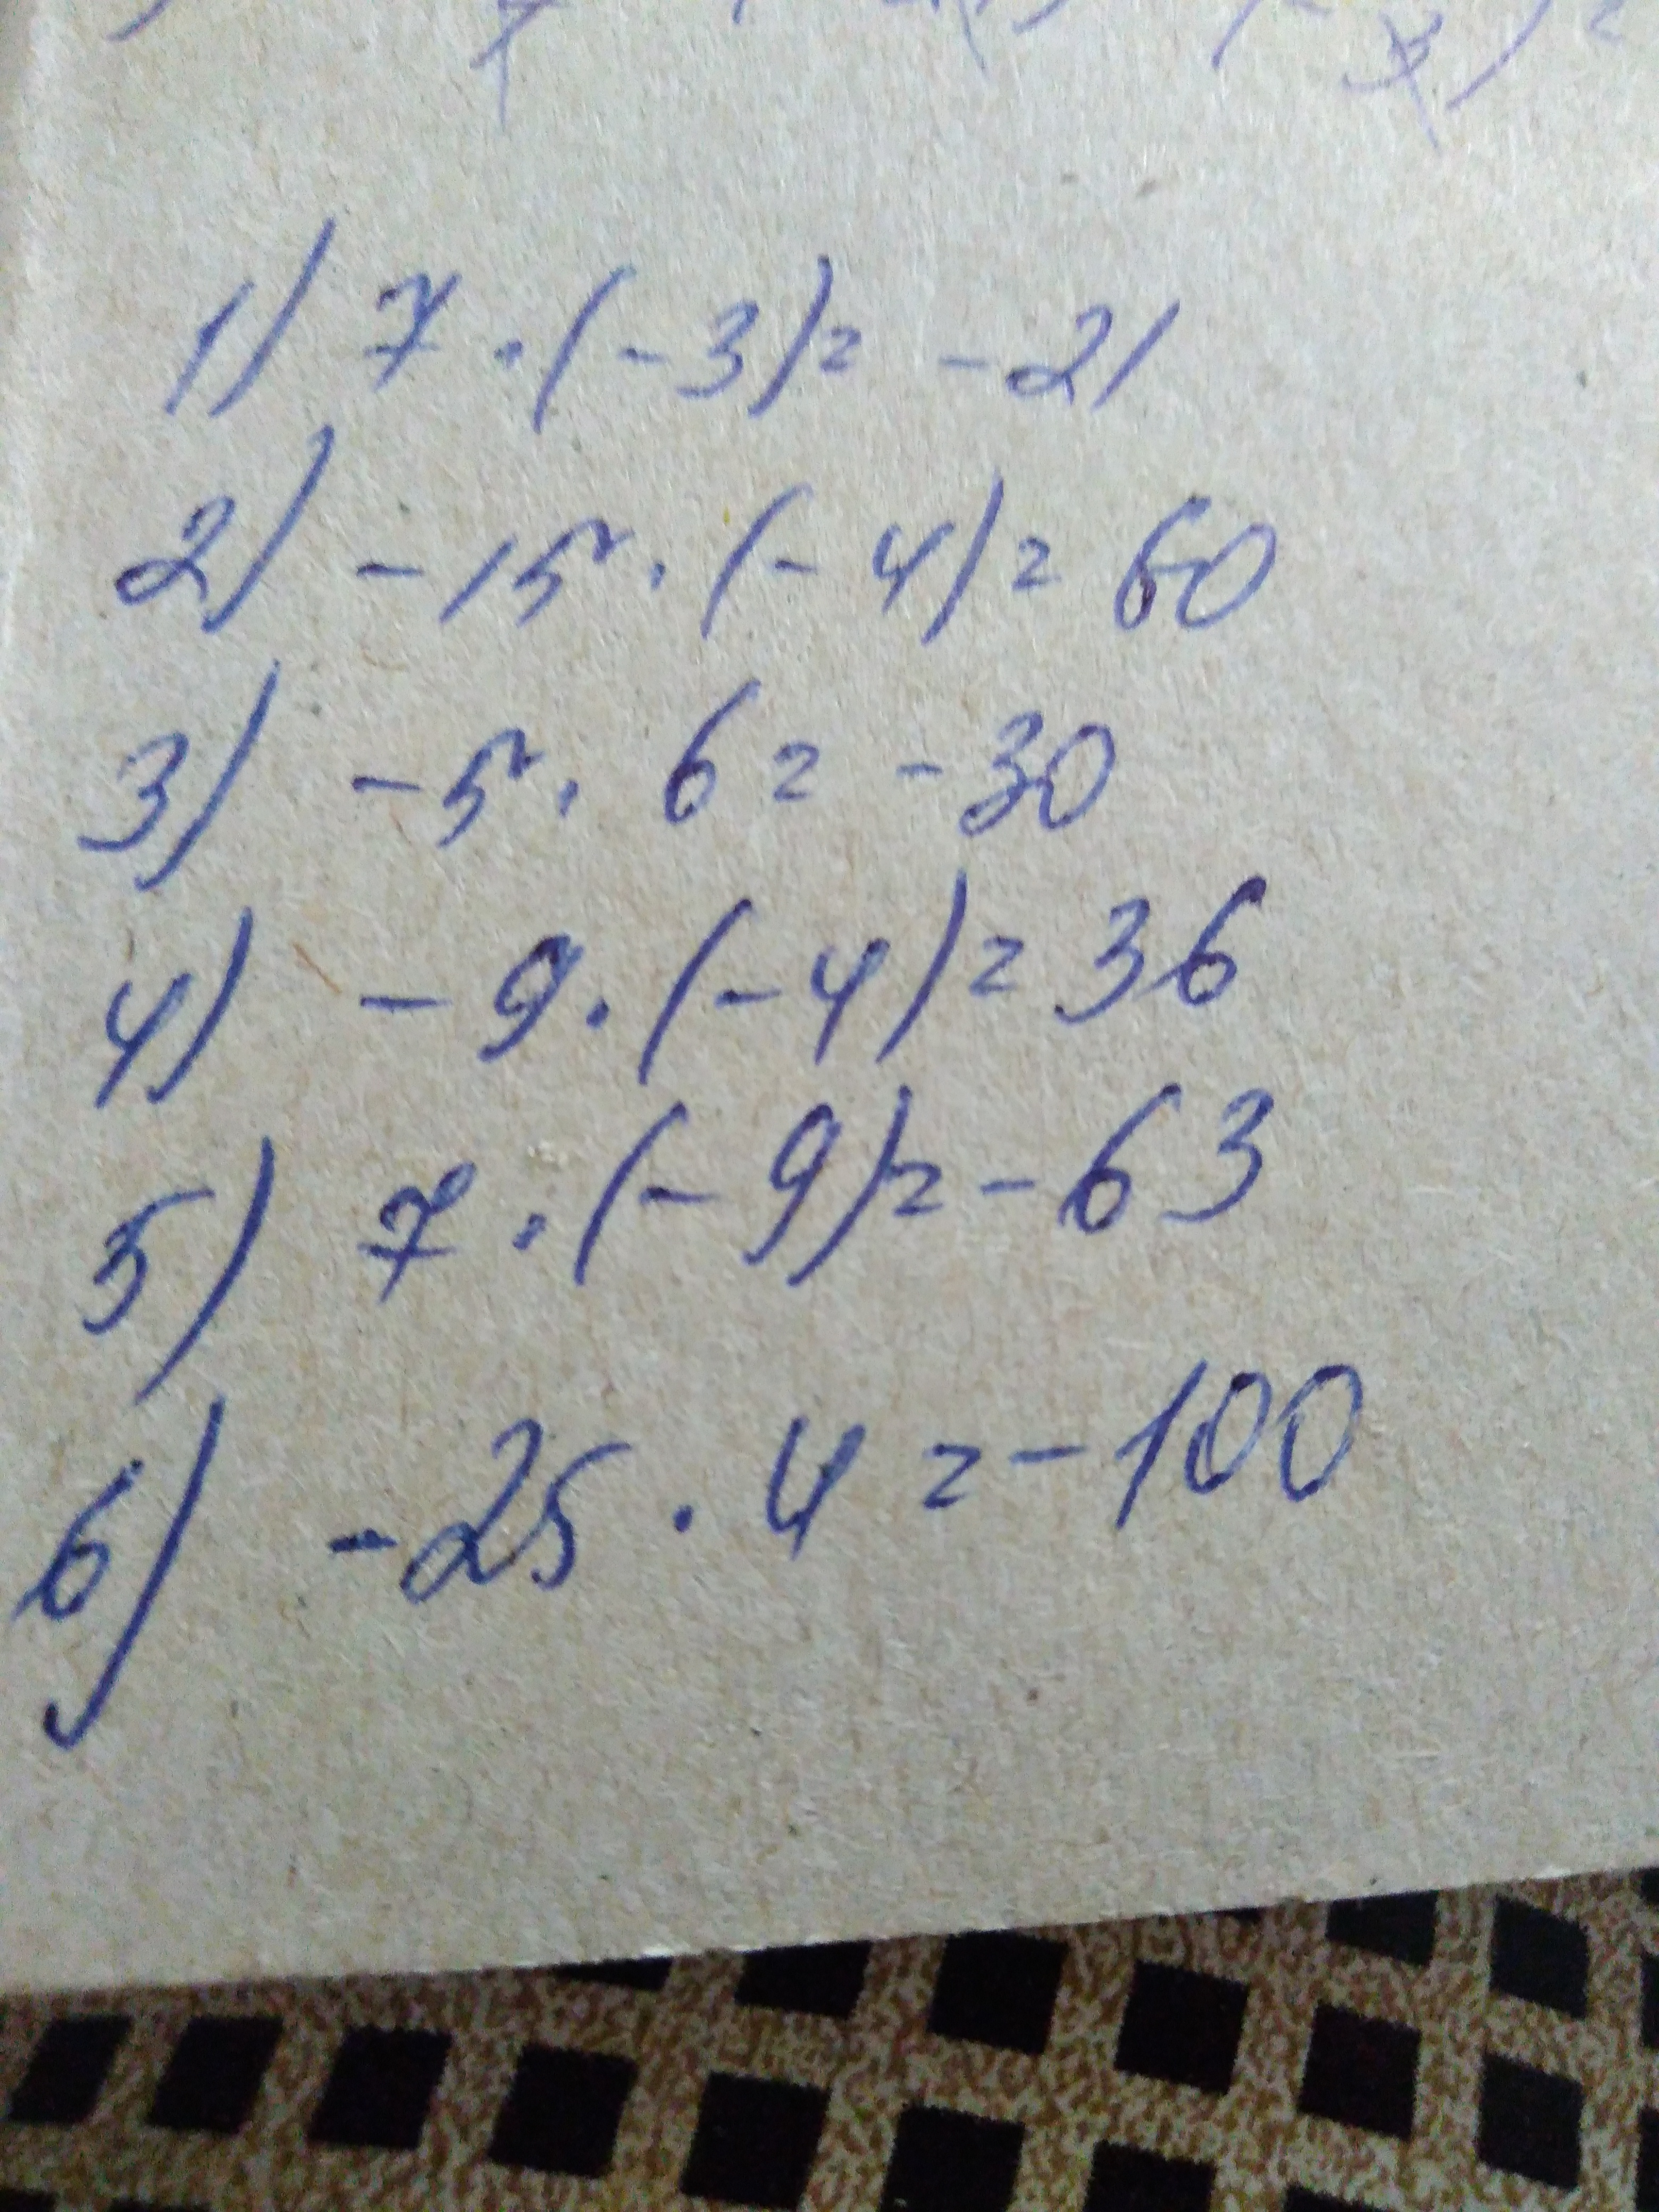 1) 7 · (-3) = -21
2) -15 · (-4) = 60
3) -5 · 6 = -30
4) -9 · (-4) = 36
5) 7 · (-9) = -63
6) -25 · 4 = -100